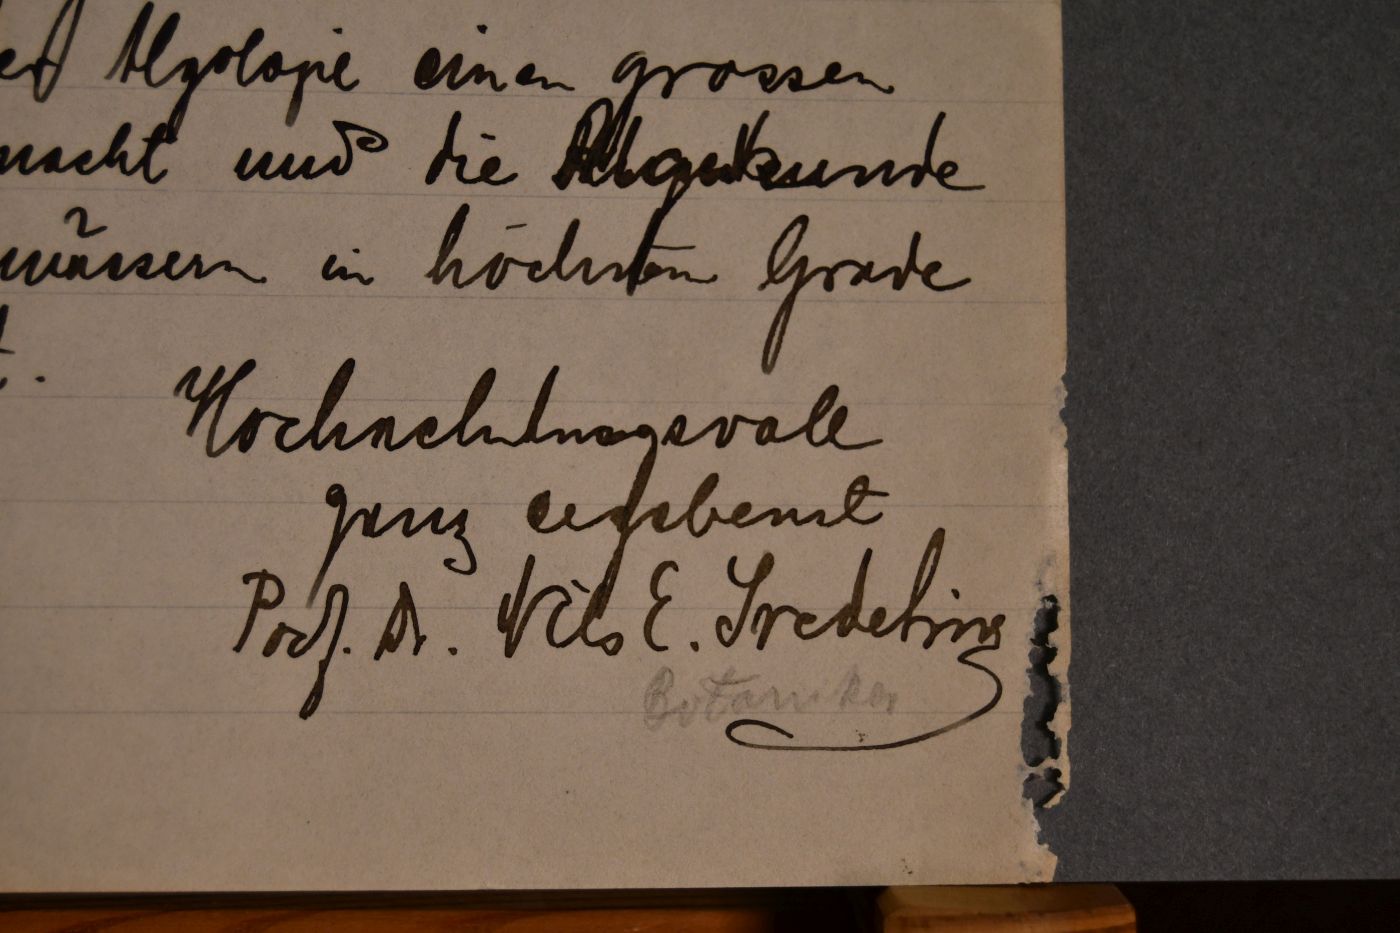 der Algologie einen grossen
macht und die Algenkunde
wässern in höchstem Grade
t.
Hochachtungsvoll
ganz ergebenst
Prof. Dr. Nils E. Svedelius
Botaniker